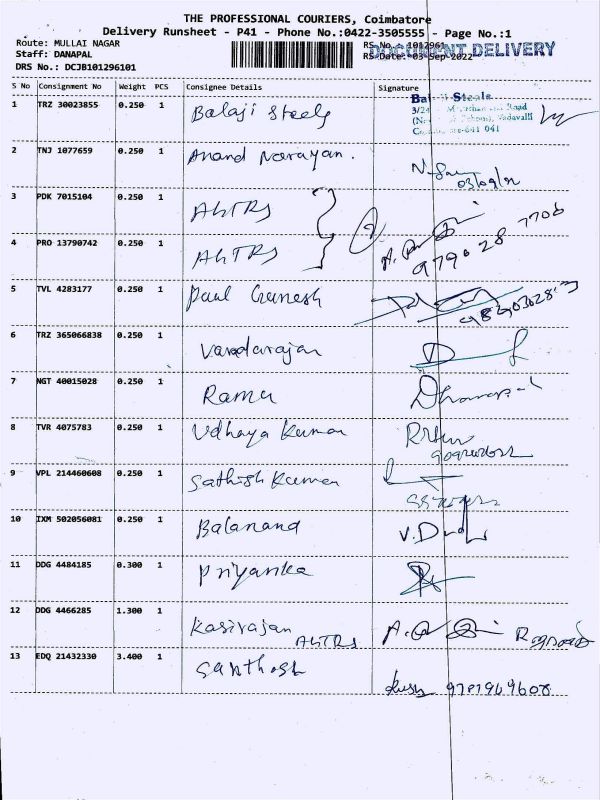 THE PROFESSIONAL COURIERS, Coimbatore
Delivery Runsheet - P41 - Phone No.:0422-3505555 - Page No.:1
Route: MULLAI NAGAR
Staff: DANAPAL
DRS No.: DCJB101296101
RS No.: 1012961
RS Date: 03-Sep-2022
DOCUMENT DELIVERY
S No Consignment No Weight PCS Consignee Details Signature
1 TRZ 30023855 0.250 1 Balaji Steels
Steels
3/24 Road
Vadavalli
641 041
2 TNJ 1077659 0.250 1 Anand Narayan.
03/09/22
3 PDK 7015104 0.250 1 AHTRS
4 PRO 13790742 0.250 1 AHTRS
979028 7706
5 TVL 4283177 0.250 1 Paul Ganesh
6 TRZ 365066838 0.250 1 Varadarajan
7 NGT 40015028 0.250 1 Ramu
8 TVR 4075783 0.250 1 Udhaya Kumar
9 VPL 214460608 0.250 1 Sathish Kumar
10 IXM 502056081 0.250 1 Balanand
11 DDG 4484185 0.300 1 Priyanka
12 DDG 4466285 1.300 1 Kasirajan AHTRS
13 EDQ 21432330 3.400 1 Santhosh